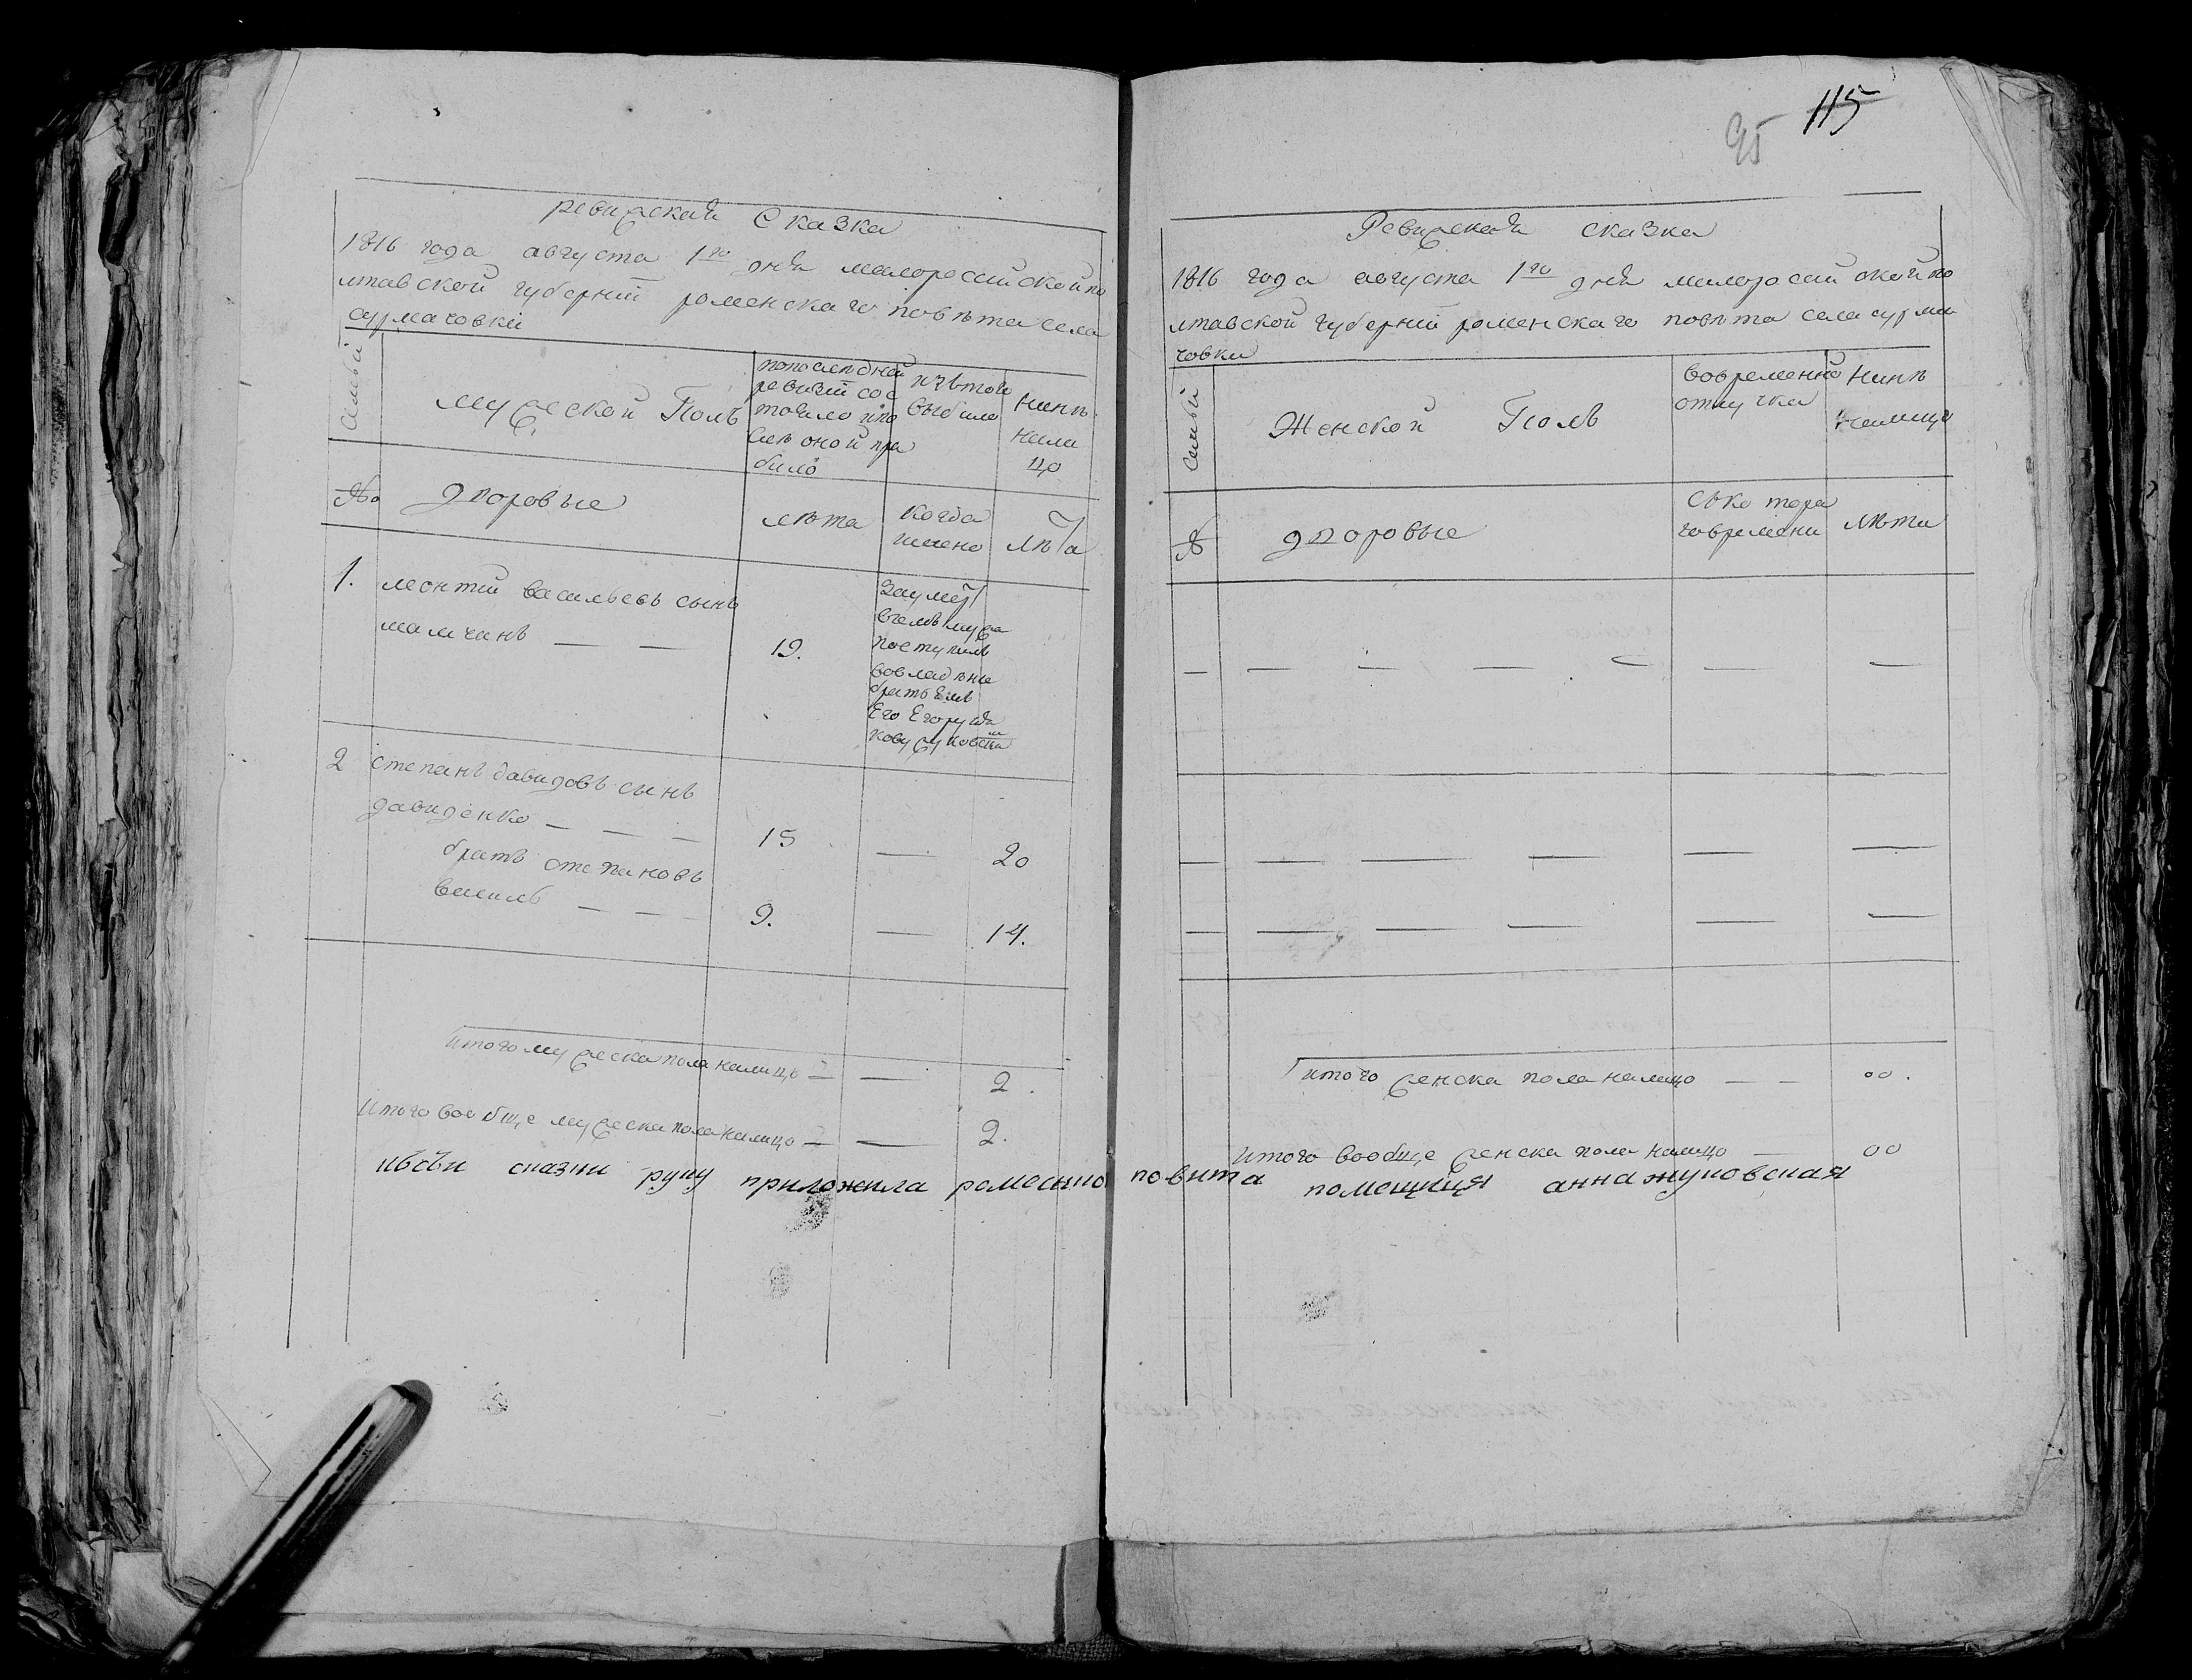 95 115
ревизская Сказка
1816 года августа 1го дня малоросийской по
лтавской губерний роменскаго повѣта села
сурмачовки
Семьи
мужеской Полъ
попоследней
ревизий сос
тояло ипо
слѣ оной при
было
изътого
выбыло
нинѣ
нали
цо
№
дворовые
лѣта
когда
именно
лѣта
1.
леонтий васильевъ сынъ
мамчинъ — —
19.
поступилъ
вовладѣние
2
степанъ давидовъ сынъ
давиденко — — —
15
—
20
братъ степановъ
василь — — —
9.
—
14.
итого мужеска пола налицо — — 2.
Итого вообще мужеска пола налицо — — 2.
Ревизская сказка
1816 года августа 1го дня малоросийской по
лтавской губерний роменскаго повѣта села сурма
човки
Семьи
Женской Полъ
вовременно
отлучки
Нинѣ
налицо
№
дворовые
съко тора
говремени
лѣта
— — — — — — —
— — — — — —
— — — — — —
итого женска пола налицо — — 00.
итого вообще женска пола налицо — 00
ивсъи сказки руку приложила роменъного повита помещиця анна жуковская